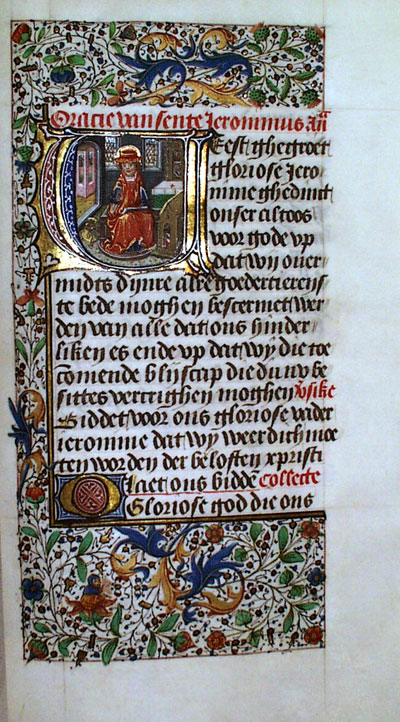 Oracie van sente Jeronimus An̄
Weest ghegroet
gloriose Jero
nime ghedinct
onser altoos
voor gode vp
dat wy ouer
midts dynre alre goedertierens
te bede moghen bescermet wer
den van alle dat ons hinder
liken es ende vp dat wy die toe
comende blijscap die du nv be
sittes vercrighen moghen v̄sike
Biddet voor ons gloriose vader
ieronime dat wy weerdich moe
ten worden der beloften xpristi
Laet ons biddē Collecte
O Gloriose god die ons